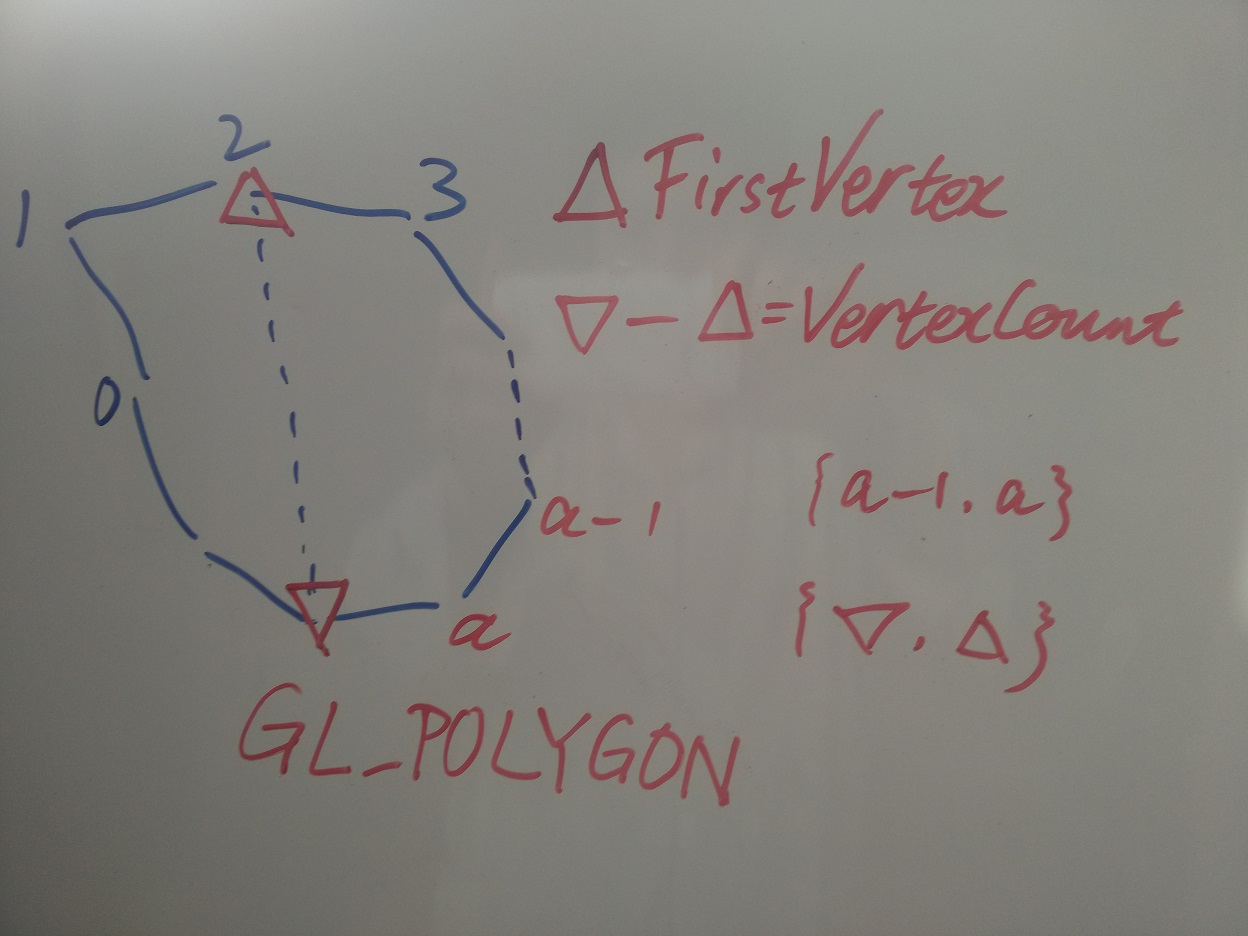 2
1
3
△ FirstVertex
▽ - △ = VertexCount
0
a-1
{a-1, a}
a
{▽, △}
GL_POLYGON